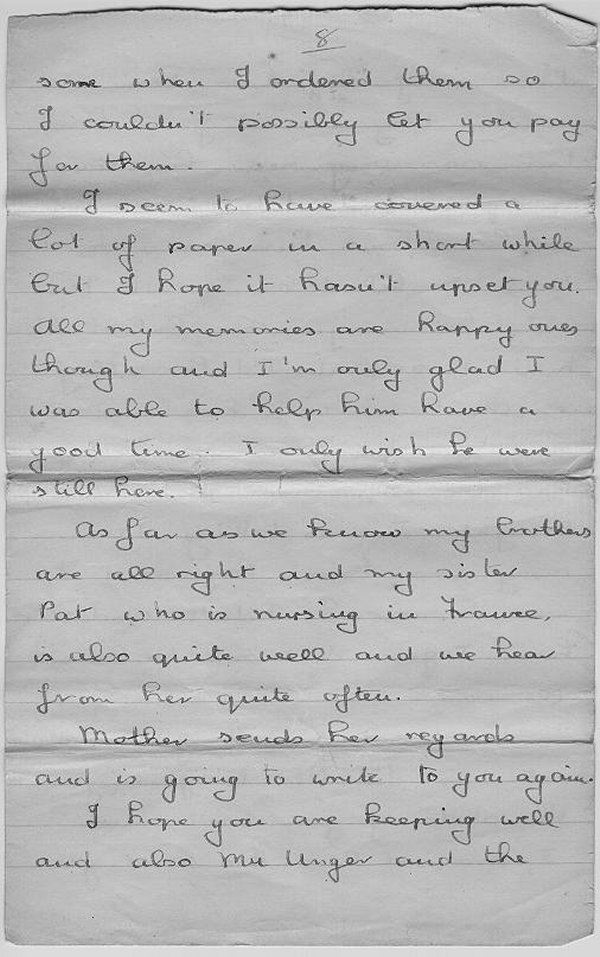 8
some when I ordered them so
I couldn't possibly let you pay
for them.
I seem to have covered a
lot of paper in a short while
but I hope it hasn't upset you.
All my memories are happy ones
though and I'm only glad I
was able to help him have a
good time. I only wish he were
still here.
As far as we know my brothers
are all right and my sister
Pat who is nursing in France,
is also quite well and we hear
from her quite often.
Mother sends her regards
and is going to write to you again.
I hope you are keeping well
and also Mr Unger and the